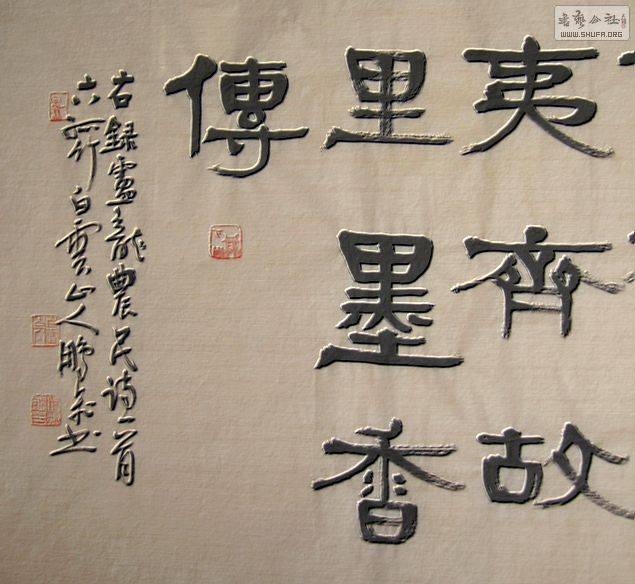 夷齊故
里墨香
傳
右録盧龍農民詩一首
白雲山人
書藝公社
WWW.SHUFA.ORG